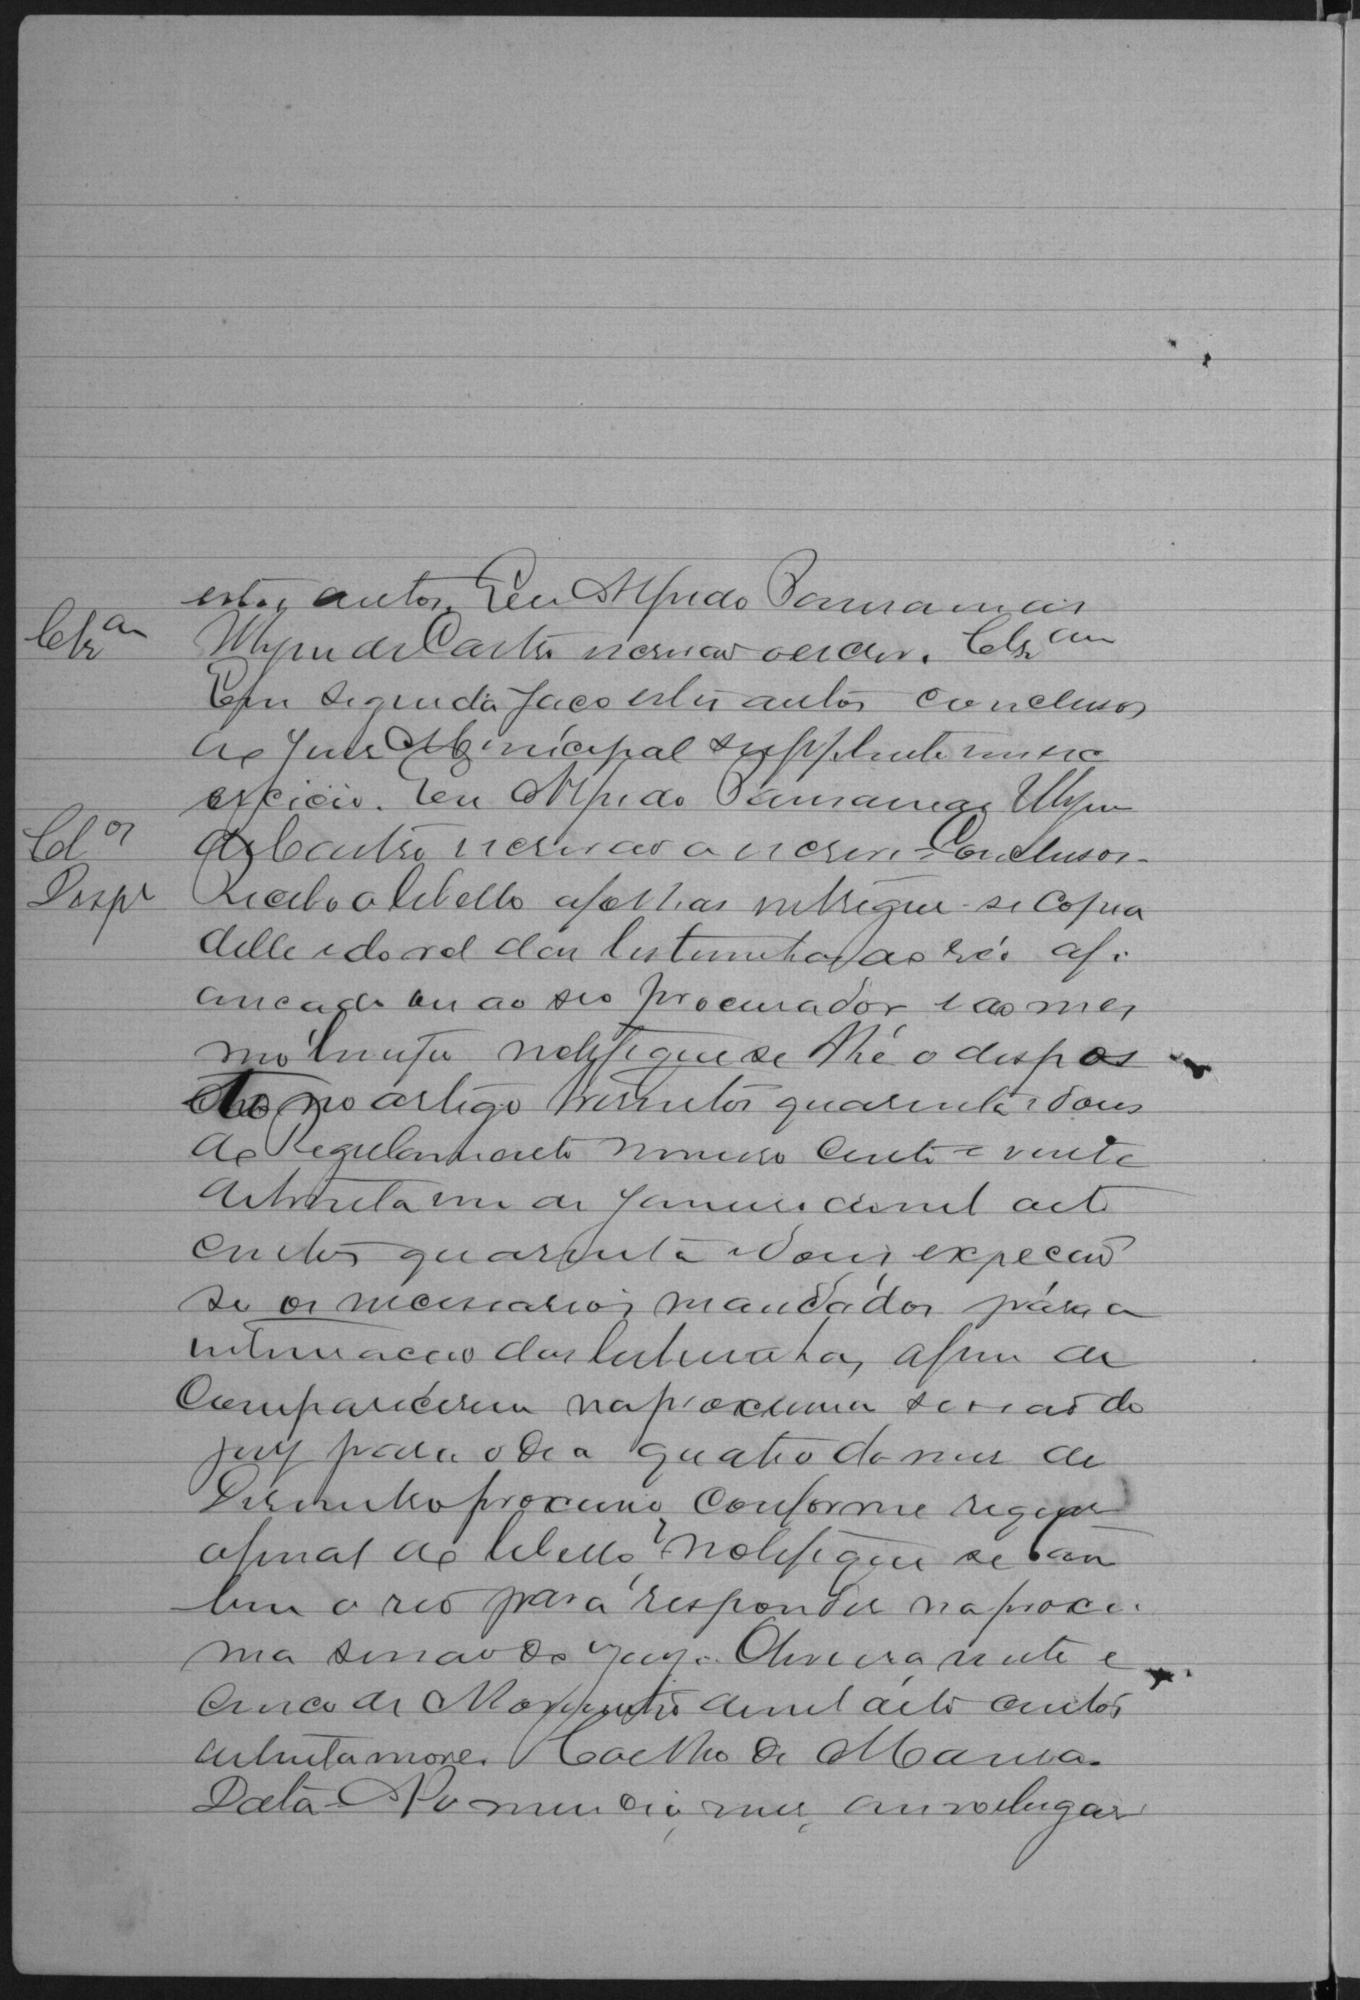 estes autos. Eu Alfredo Parnamas
Clsam
Ulyse de Castro escrivão escrevi. Clsam
Em seguida faço estes autos conclusos
ao Juis Municipal supplente em exc
ercicio. Eu Alfredo Ulyse
Clos
de Castro escrivão o escrevi. Conclusos.
Desp
Recebo o libello a folhas entregue-se copia
delle e do rol das testemunhas ao réo afi
ancado ou ao seo procurador e ao mes
mo notifique se lhe o dispos
to no artigo tresentos quarenta e dous
do Regulamento numero cento e vinte
de trinta um de Janeiro de mil oito
centos quarenta e dous, expeção
se os necessarios mandados para a
intimacão das testemunhas, afim de
comparecerem na proxima sessão do
jury para o dia quatro do mes de
Desembro proximo conforme requer
afinal do libello, notifique se tam
bem o reo para responder na proxi
ma sessão do jury. Oliveira, vinte e
cinco de Novembro de mil oito centos
oitenta nove. Coelho de Moura.
Data No mesmo dia, mes, anno e lugar